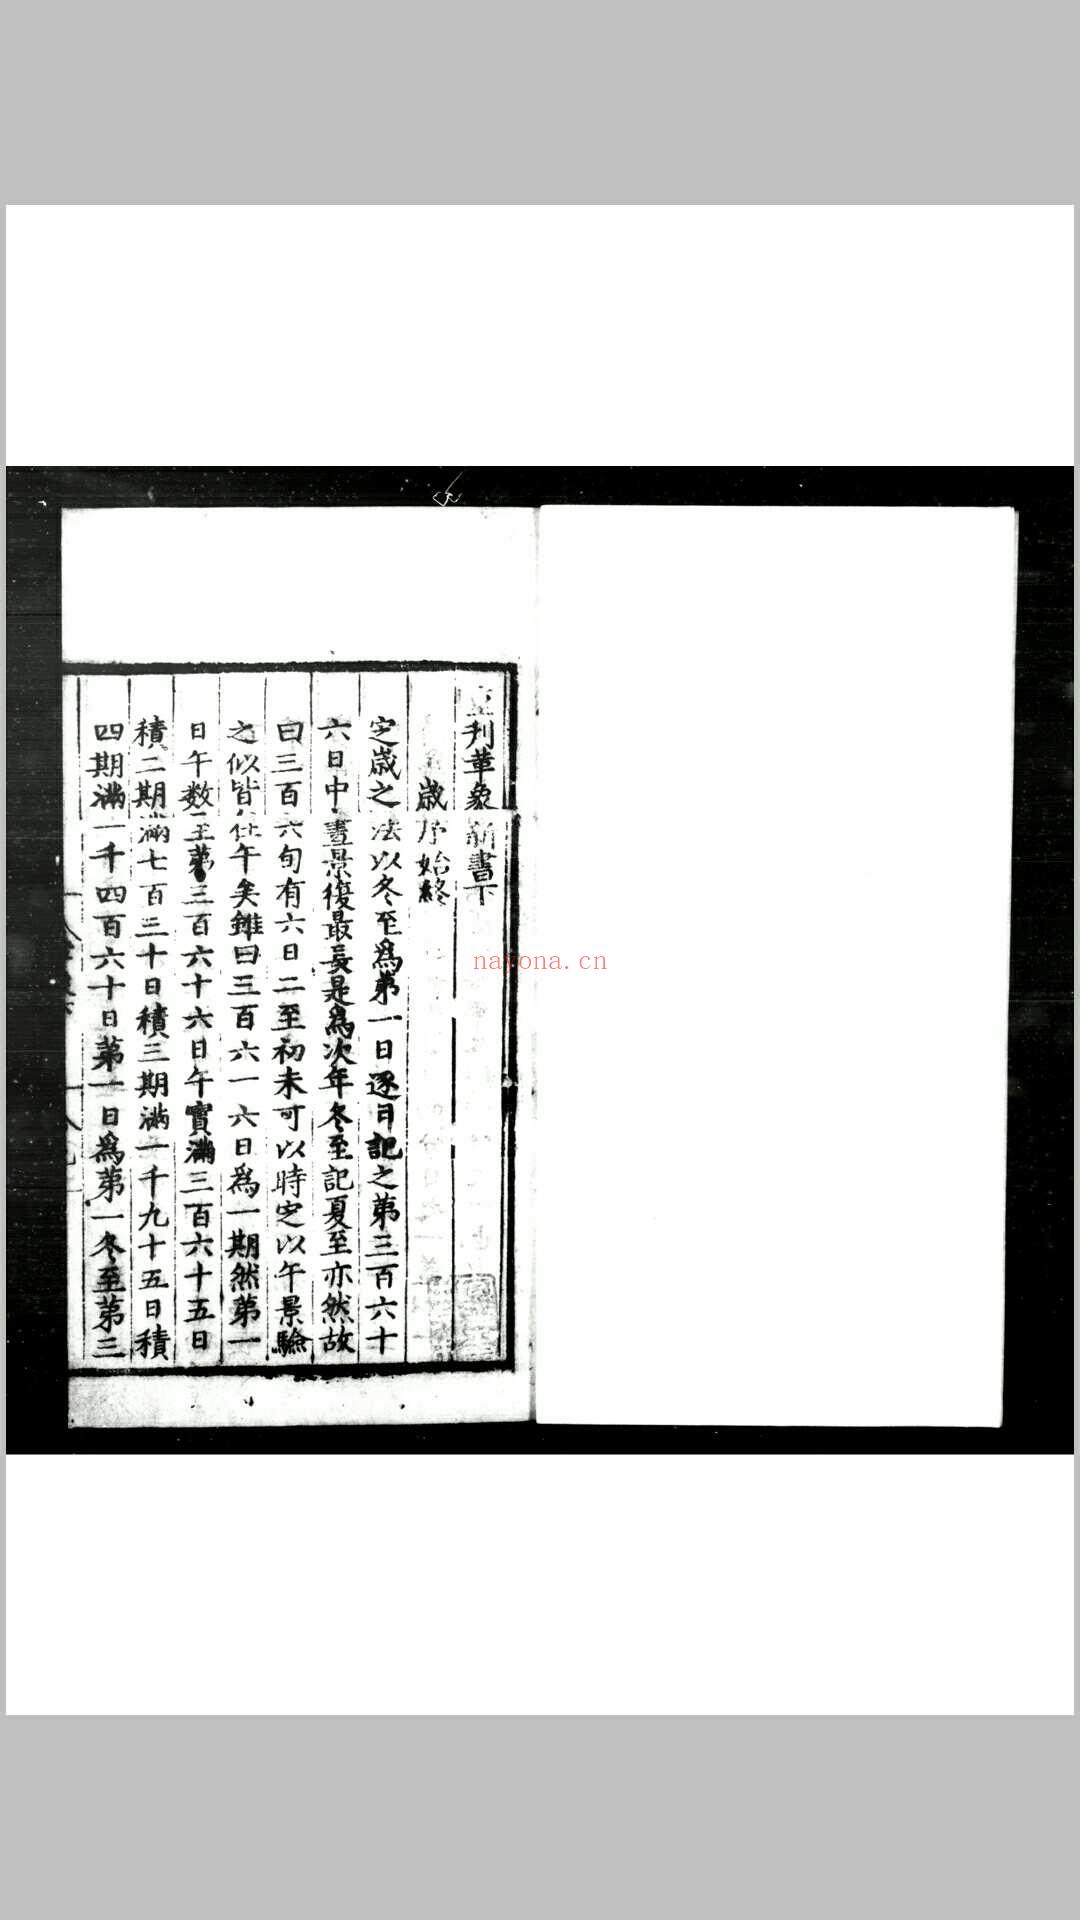 刋革象新書下
歲序始終
定歲之法以冬至爲第一日逐日記之第三百六十
六日中晝景復最長是爲次年冬至記夏至亦然故
曰三百六旬有六日二至初未可以時定以午景驗
之似皆在午矣雖曰三百六一六日爲一期然第一
日午数至第三百六十六日午實滿三百六十五日
積二期滿七百三十日積三期滿一千九十五日積
四期滿一千四百六十日第一日爲第一冬至第三
nayona.cn